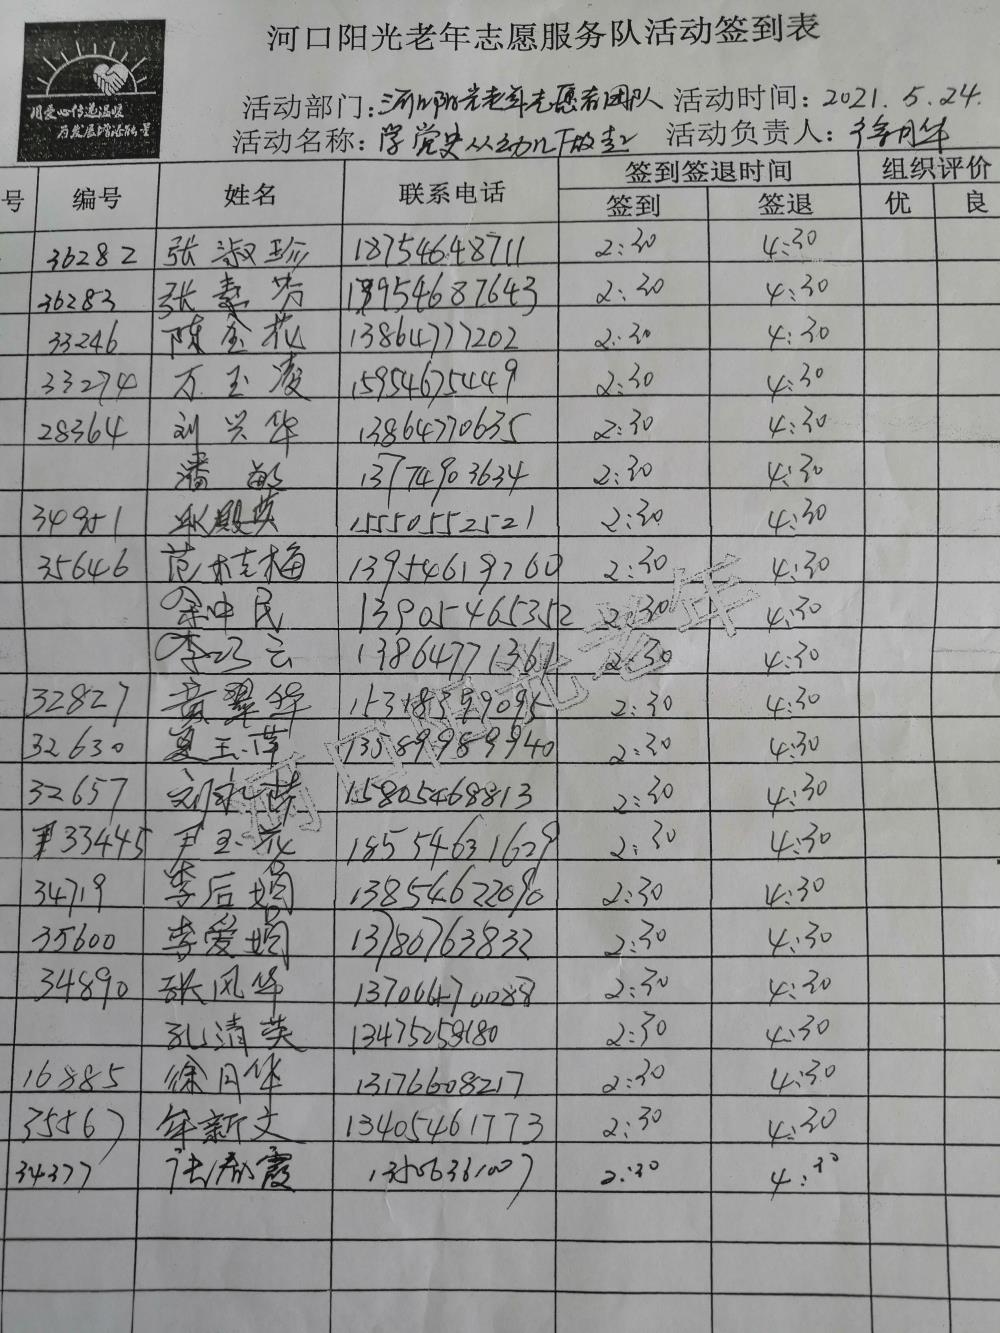 河口阳光老年志愿服务队活动签到表
用爱心传递温暖
为发展增添能量
活动部门:河口阳光老年志愿者团队 活动时间:2021.5.24.
活动名称:学党史从我做起 活动负责人:徐月华
号 编号 姓名 联系电话 签到签退时间 组织评价
签到 签退 优 良
36282 张淑珍 18754648711 2:30 4:30
36283 张素芳 18954687643 2:30 4:30
33246 陈金花 13864777202 2:30 4:30
33274 万玉凌 15954675449 2:30 4:30
28364 刘兴华 13864770635 2:30 4:30
潘敏 13774903634 2:30 4:30
34951 殿英 15550552521 2:30 4:30
35646 范桂梅 13954619760 2:30 4:30
余中民 13905465352 2:30 4:30
李巧云 13864771361 2:30 4:30
32827 黄翠华 15318399095 2:30 4:30
32630 夏玉萍 13589989940 2:30 4:30
32657 刘永荣 15805468813 2:30 4:30
33445 尹玉花 18554631629 2:30 4:30
34719 李后娟 13854622090 2:30 4:30
35600 李爱娟 13780763832 2:30 4:30
34890 张风华 13706470088 2:30 4:30
孔清英 13475259180 2:30 4:30
16885 徐月华 13176608217 2:30 4:30
35567 年新文 13405461773 2:30 4:30
34377 张春霞 13506361007 2:30 4:30
河口阳光老年